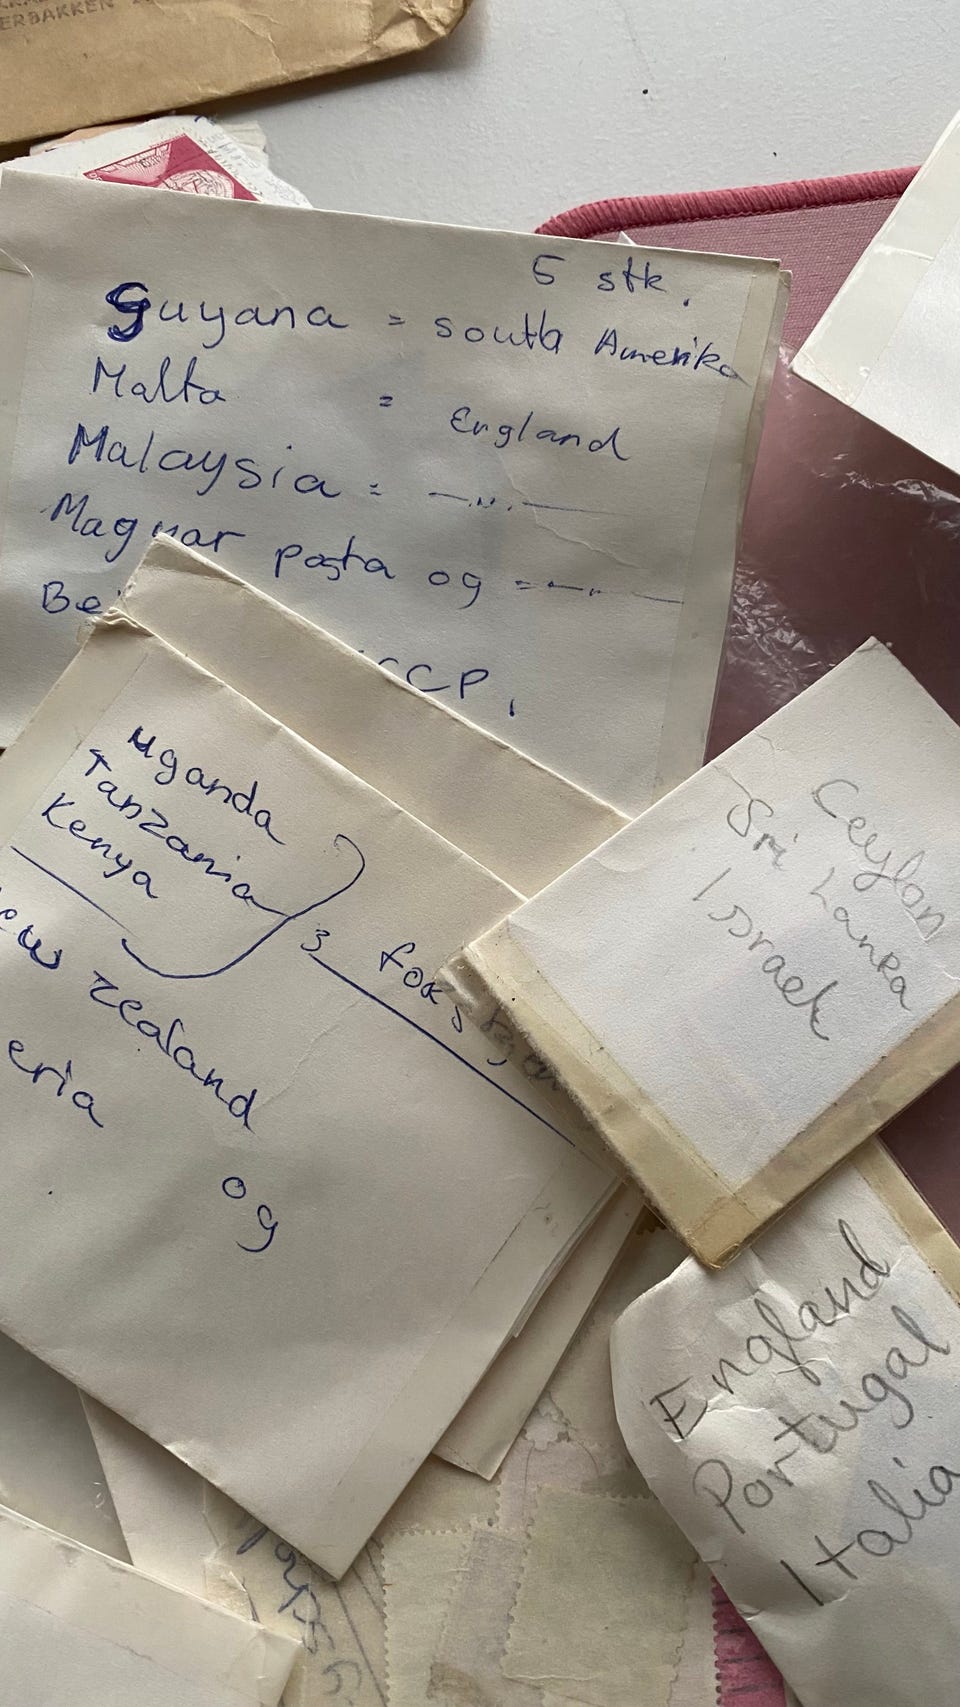 ERBAKKEN
5 stk.
Guyana = south Amerika
Malta = England
Malaysia = —〃—
Magyar posta og = —〃—
Be
CCP,
Uganda
Tanzania
Kenya
3 for,
ew Zealand
eria
og
Ceylon
Sri Lanka
Israel
England
Portugal
Italia